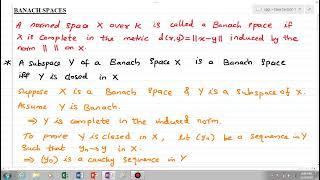 BANACH SPACES
A normed space X over K is called a Banach space if
X is complete in the metric d(x,y)=||x-y|| induced by the
norm || || on X.
* A subspace Y of a Banach space X is a Banach space
iff Y is closed in X
Suppose X is a Banach space & Y is a subspace of X.
Assume Y is Banach.
⇒ Y is complete in the induced norm.
To prove Y is closed in X, let (yn) be a sequence in Y
Such that yn→y in X.
⇒ (yn) is a cauchy sequence in Y